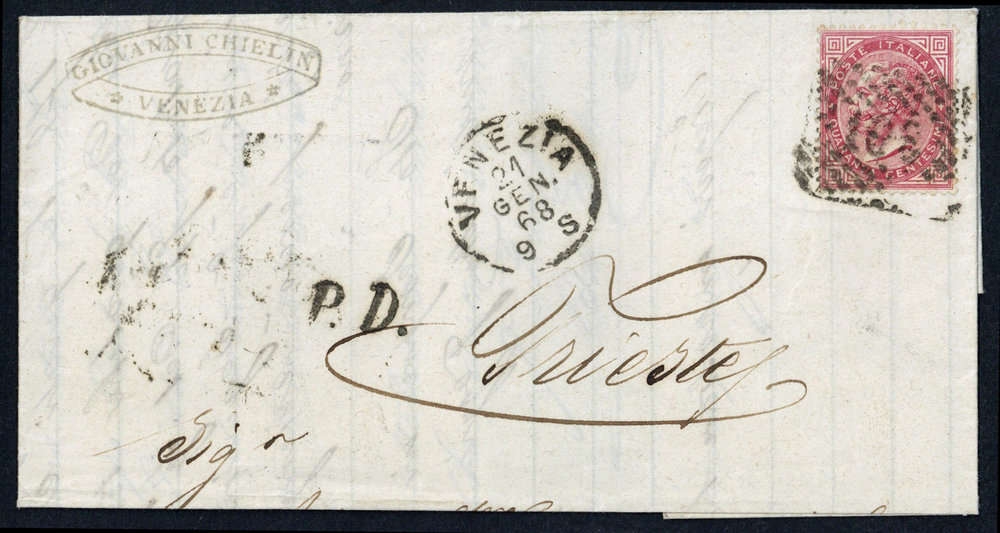 GIOVANNI CHIELIN
* VENEZIA *
POSTE ITALIANE
QUARANTA CENTESIMI
VENEZIA
21
GEN
68
9 S
P. D.
Trieste
Sigr